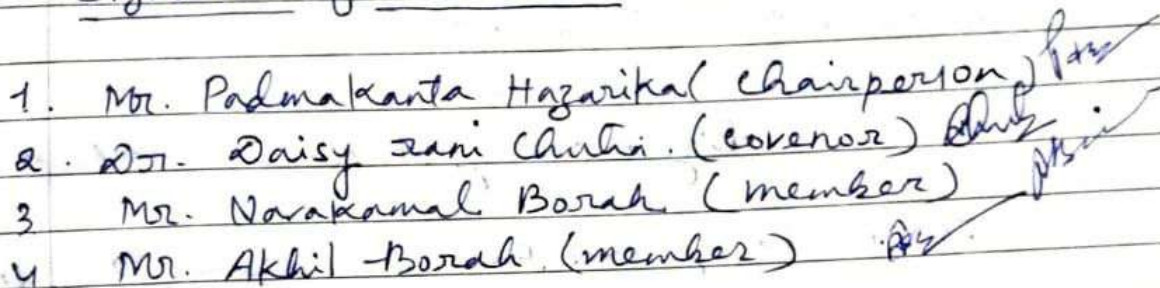 1. Mr. Padmakanta Hazarika (Chairperson)
2. Dr. Daisy rani Chutia. (covenor)
3 Mr. Navakamal Borah (member)
4 Mr. Akhil Borah (member)